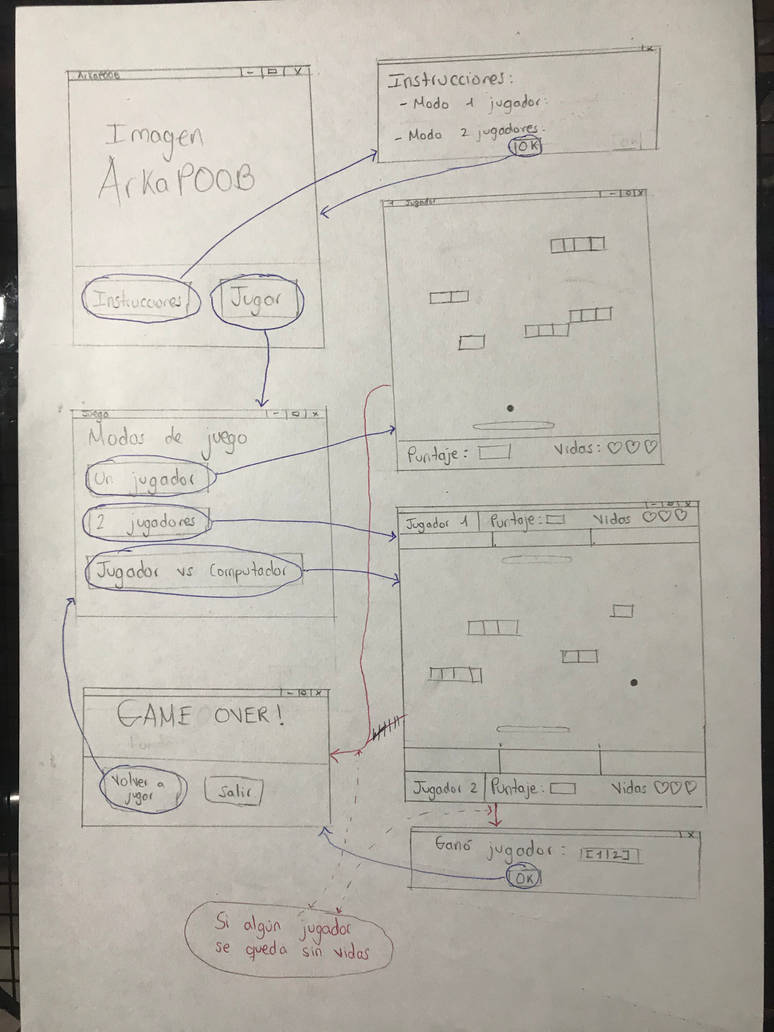 ArkaPOOB
Imagen
ArkaPOOB
Instrucciones
Jugar
Instrucciones:
- Modo 1 jugador:
- Modo 2 jugadores:
OK
1 Jugador
Puntaje:
Vidas:
Juego
Modos de juego
Un jugador
2 jugadores
Jugador vs Computador
Jugador 1 Puntaje: Vidas
Jugador 2 Puntaje: Vidas
GAME OVER!
Volver a
jugar
Salir
Ganó jugador: [1|2]
OK
Si algún jugador
se queda sin vidas